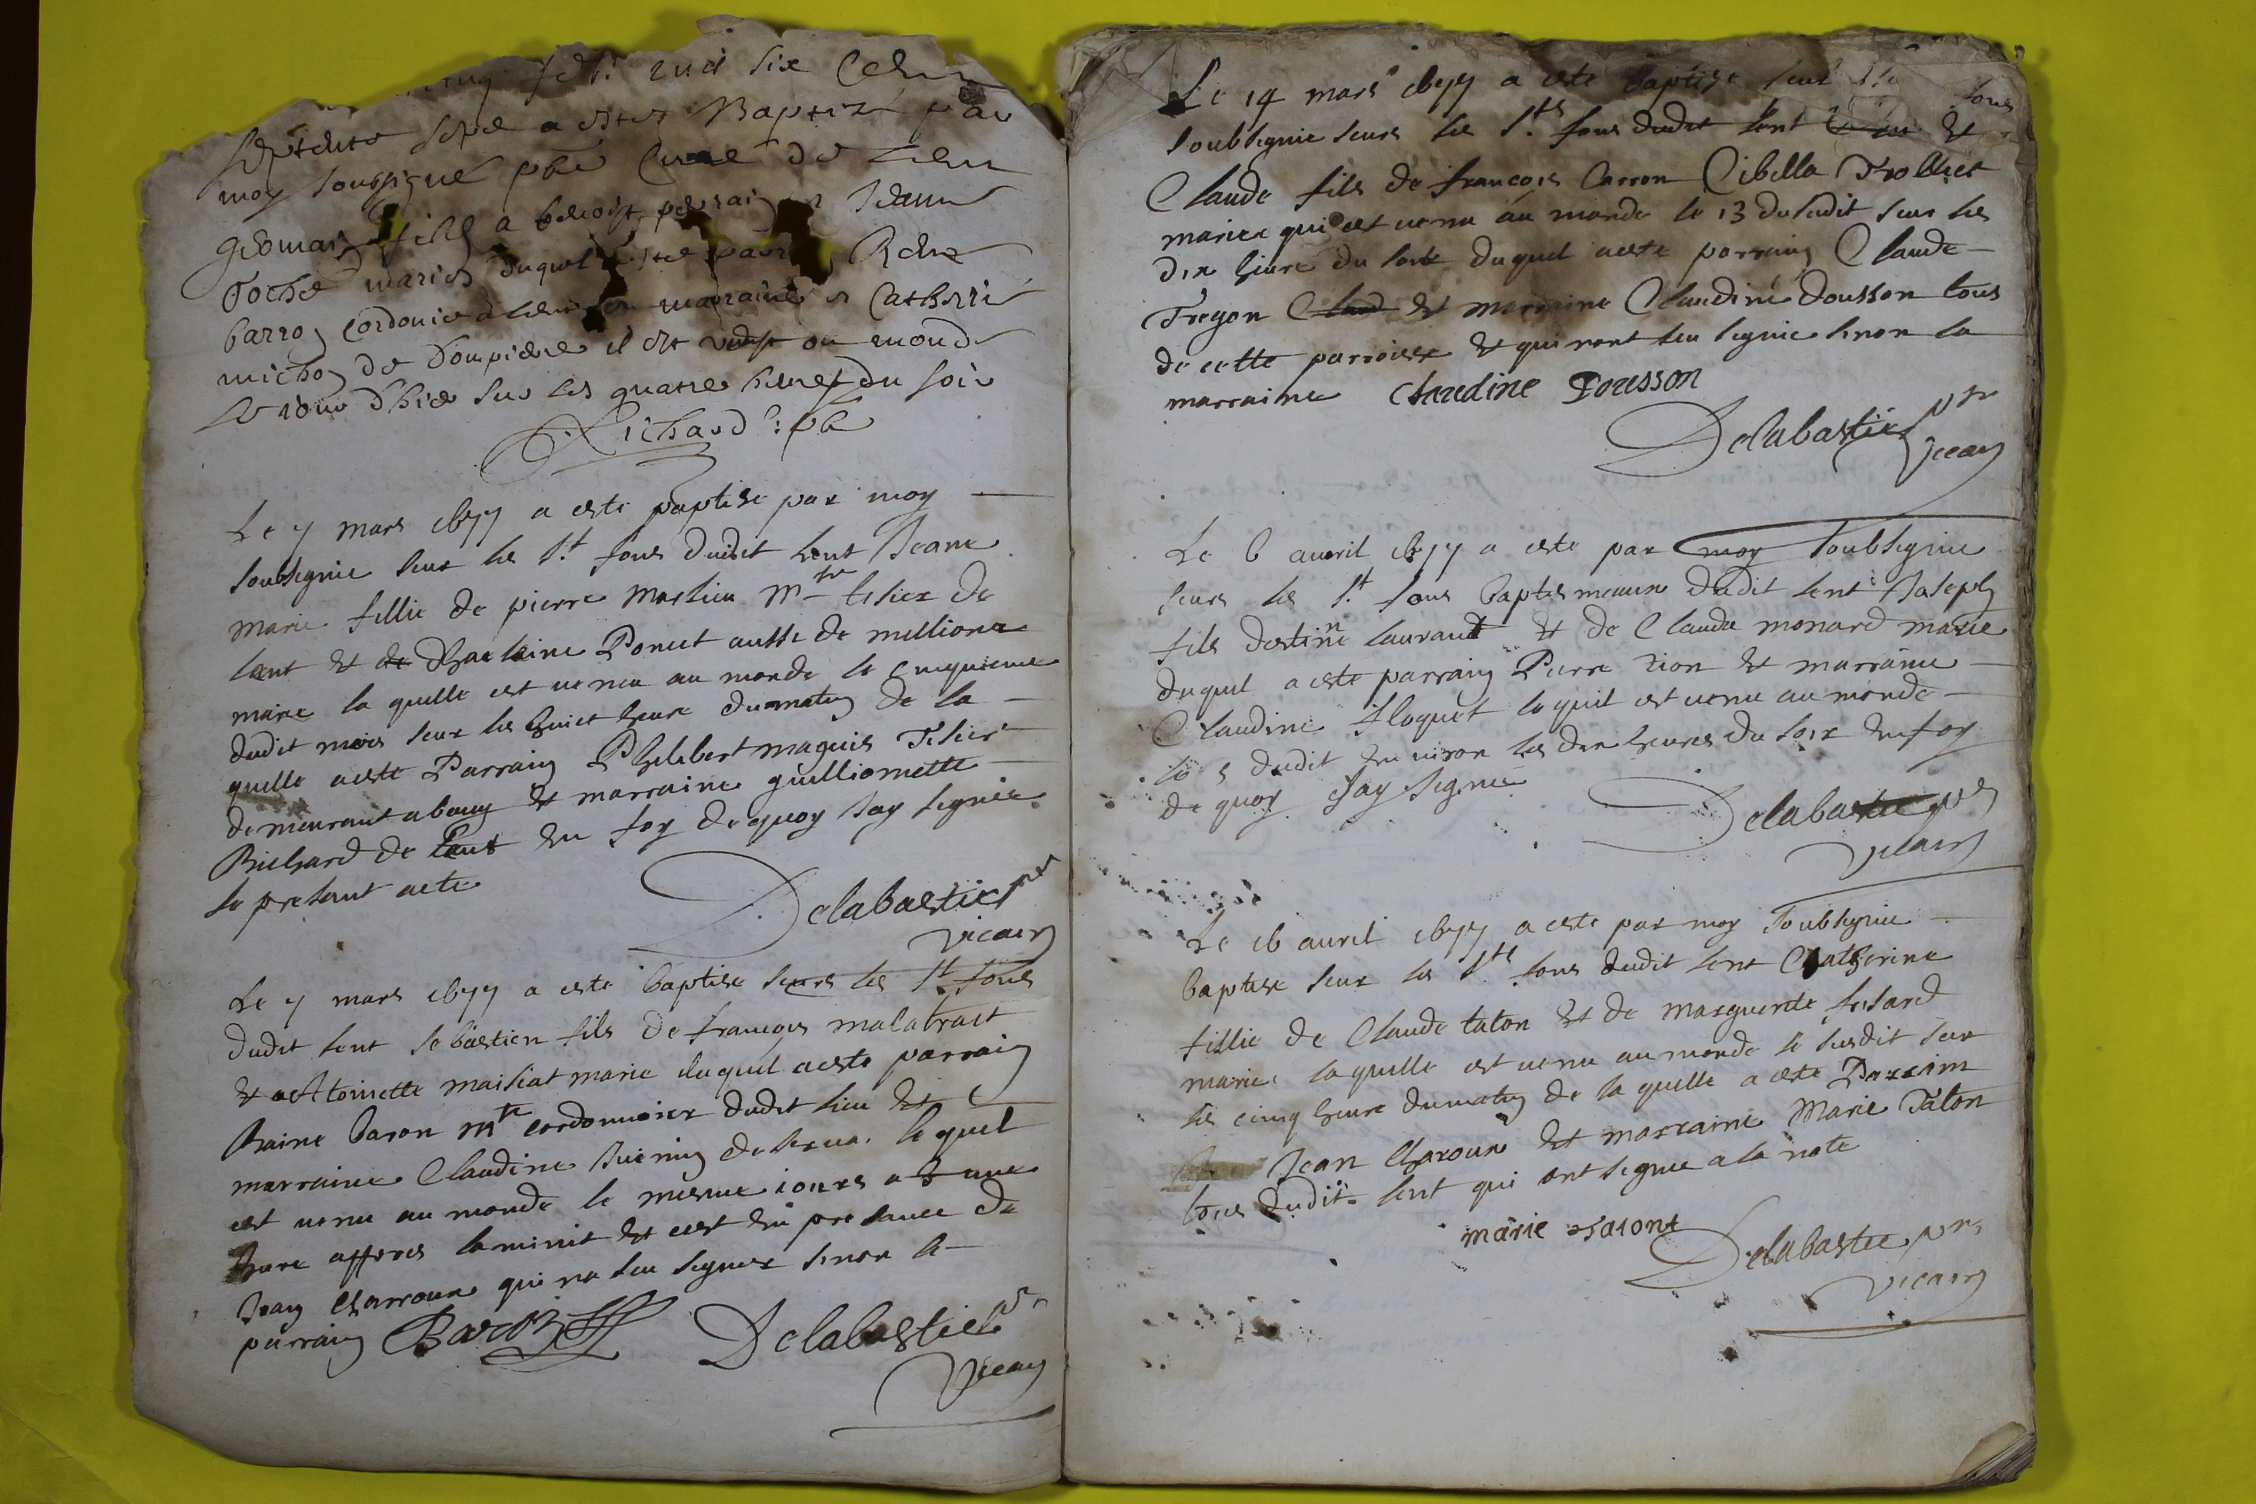 mil six Cent
septente sept a estez Baptizé par
moy soubsigné pbre Curé de Lent
germai fils a benoist perrai Jeanne
Poché mariés duquel
barroy Cordonier a Lent marraine Catherine
michoy de Dompierre il est venu au monde
le iour d'hier sur les quatre heures du soir
Richard pbre
Le 7 mars 1677 a este paptise par moy
soubsignie seur les St fons dudit lent Jeane
Marie fillie de pierre Mathieu Mtre tisier de
lent et de Charlaine Ponset aussi de
marie la quelle est venu au monde le cinquieme
dudit mois seur les huict heure du matin de la
quelle aeste Parrain Philibert maguis Tisier
demeurant a bourg et marraine guilliomette
Richard de Lent en foy de quoy Jay signie
le presant acte
Delabastie
vicair
Le 7 mars 1677 a este baptise seurs les St fons
dudit lent sebastien fils de francois malatrait
et Antoinette maisiat marie duquel aeste parrain
Baron Mtre cordonnier dudit lieu et
marraine Claudine de le quel
est venu au monde le mesme iours a une
heure appres la minit et cest en presance de
Jean Charroux qui na seu signer sinon le
parrain Baron Delabastie
Vicair
Le 14 mars 1677 a este baptise
soubsignie seurs les Sts fons dudit lent et
Claude fils de francois Carron Cibella Trolliet
maries qui est venu au monde le 13 dusudit seur les
dix heure du soir duquel aeste parrain Claude
Tregon Claud et marraine Claudine dousson tous
de cette parroisse et qui nont seu signie sinon la
marraine Claudine Dousson
Delabastie
vicair
Le 6 avvril 1677 a este par moy soubsignie
seurs les St fons baptismeaux dudit lent Joseph
fils destine laurant et de Clauda monard marie
duquel aeste parrain Pierre rion et marraine
Claudine floquet lequil est venu au monde
le 5 dudit environ les dix heures du soir en foy
de quoy Jay signie
Delabastie
vicair
Le 16 avril 1677 a este par moy soubsignie
baptise seur les Sts fons dudit lent Catherine
fillie de Claude talon et de marguerite
maries la quelle est venu au monde le susdit seur
les cinq heure dumatin de la quelle a este Parrain
Jean Charoux et marraine Marie Talon
tous dudit lent qui ont signie a la note
marie talont
Delabastie
vicair